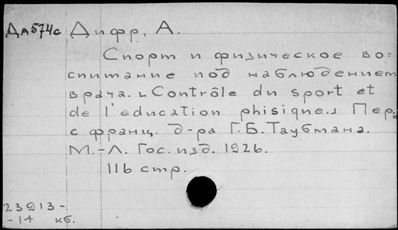 Да574с Дифр, А.
Спорт и физическое во-
спитание под наблюдением
врача. ⌞Contrôle du sport et
de l'education phisique⌟ Пер.
с франц. д-ра Г.Б. Таубмана.
М.-Л. Гос. изд. 1926.
116 стр.
23913-
-14 кб.